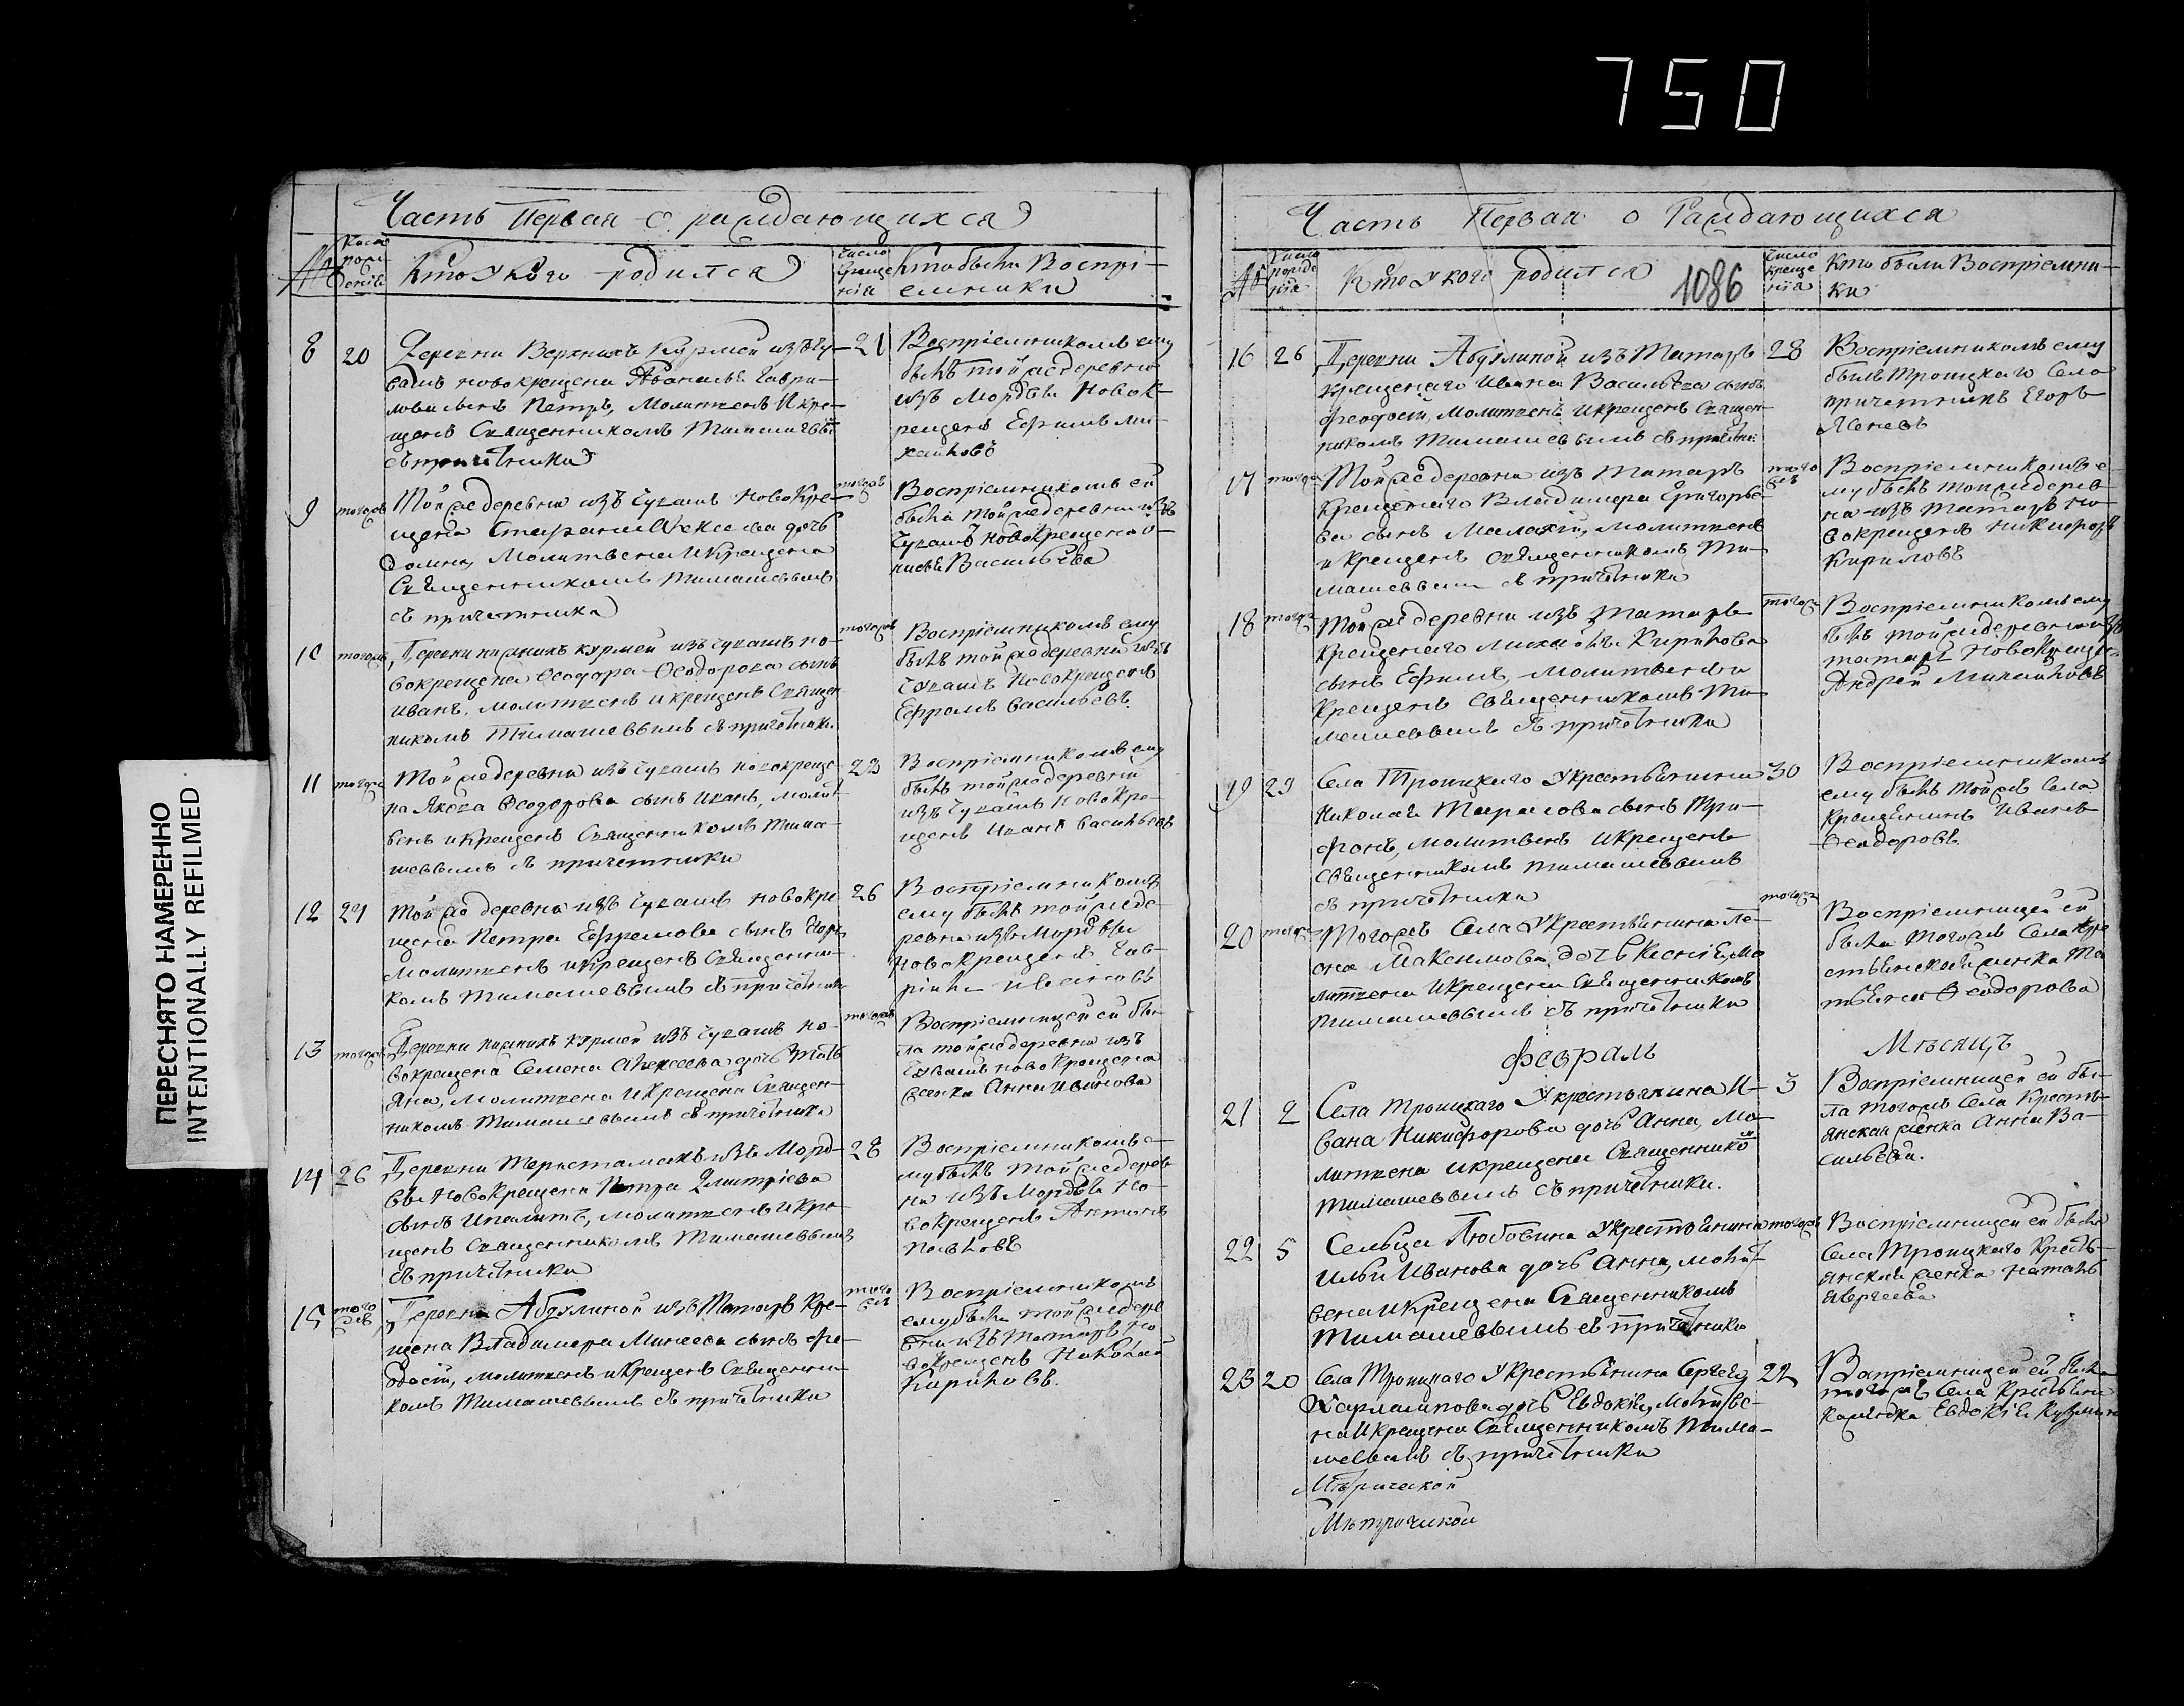 750
ПЕРЕСНЯТО НАМЕРЕННО
INTENTIONALLY REFILMED
Часть Первая о раждающихся
№ Число рождения
Кто у кого родился
Число крещения
Кто были Воспріемники
8 20
Деревни Верхнихъ Курмей изъ чу-
вашъ новокрещена Аѳанасья Гаври-
лова сынъ Петръ, Молитвенъ и кре-
щенъ Священникомъ Тимашевым
съ причетники
21
Воспріемникомъ ему
былъ той же деревни
изъ Мордвы Новок-
рещенъ Ефимъ Ми-
хайловъ
9 тогожъ
Той же деревни изъ чувашъ новокре-
щена Алексеева дочь
Домна, Молитвена и крещена
Священникомъ Тимашевымъ
съ причетники
тогожъ
Воспріемникомъ ей
была той же деревни изъ
чувашъ новокрещена
Васильева
10 тогожъ
Деревни нижнихъ курмей изъ чувашъ но-
вокрещена Ѳеодора Ѳеодорова сынъ
Иванъ, молитвенъ и крещенъ Священ-
никомъ Тимашевымъ съ причетники
тогожъ
Воспріемникомъ ему
былъ той же деревни изъ
чувашъ новокрещенъ
Ефремъ Васильевъ
11 тогожъ
Той же деревни изъ чувашъ новокреще-
на Якова Ѳеодорова сынъ Иванъ, молит-
венъ и крещенъ Священникомъ Тима-
шевымъ съ причетники
23
Воспріемникомъ ему
былъ той же деревни
изъ чувашъ новокре-
щенъ Иванъ Васильевъ
12 24
Той же деревни изъ чувашъ новокре-
щена Петра Ефремова сынъ
Молитвенъ и крещенъ Священни-
комъ Тимашевымъ съ причетники
26
Воспріемникомъ
ему былъ той же де-
ревни изъ Мордвы
новокрещенъ Гав-
ріилъ Ивановъ
13 тогожъ
Деревни нижнихъ курмей изъ чувашъ но-
вокрещена Семена Алексеева дочь Тать-
яна, Молитвена и крещена Священ-
никомъ Тимашевымъ съ причетники
тогожъ
Воспріемницей ей бы-
ла той же деревни изъ
чувашъ новокрещена
женка Анна Иванова
14 26
Деревни изъ Морд-
вы новокрещена Петра Дмитріева
сынъ Ипалитъ, молитвенъ и кре-
щенъ Священникомъ Тимашевымъ
съ причетники
28
Воспріемникомъ е-
му былъ той же дерев-
ни изъ Мордвы но-
вокрещенъ Антонъ
Павловъ
15 тогожъ
Деревни Абдулиной изъ Татаръ кре-
щена Владимера Минеева сынъ Фе-
одосій, молитвенъ и крещенъ Священни-
комъ Тимашевымъ съ причетники
того жъ
Воспріемникомъ
ему былъ той же дере-
вни изъ татаръ но-
вокрещенъ Николай
Кириловъ.
Часть Первая о Раждающихся
№ Число рожденія
Кто у кого родился
1086
Число крещенія
Кто были Воспріемни-
ки
16 26
Деревни Абдулиной изъ Татаръ
крещенаго Ивана Васильева сынъ
Феодосій, Молитвенъ и крещенъ Священ-
никомъ Тимашевымъ съ причетни:
28
Воспріемникомъ ему
былъ Троицкаго Села
причетникъ Егоръ
17 тогожъ
Той же деревни изъ Татаръ
крещенаго Владимера Григорье-
ва сынъ Малахій, молитвенъ
и крещенъ священникомъ Ти-
машевымъ съ причетники
того жъ
Воспріемникомъ е-
му былъ той же дерев-
ни изъ татаръ но-
вокрещенъ Никифоръ
Кириловъ
18 тогожъ
Той же деревни изъ татаръ
крещенаго Михайлы Кирилова
сынъ Ефимъ, Молитвенъ и
крещенъ священникомъ Ти-
машевымъ съ причетники
тогожъ
Воспріемникомъ ему
былъ той же деревни изъ
татаръ Новокрещенъ
Андрей Михайловъ
19 29
Села Троицкаго у крестьянина
Николая Тарасова сынъ Три-
фонъ, молитвенъ и крещенъ
священникомъ Тимашевымъ
съ причетники
30
Воспріемникомъ
ему былъ той жъ Села
крестьянинъ Иванъ
Ѳеодоровъ.
20 тогожъ
Тогожъ Села у крестьянина Ле-
она Максимова дочь Ксенія, Мо-
литвена и крещена Священникомъ
Тимашевымъ съ причетники
тогожъ
Воспріемницей ей
была тогожъ Села кре-
стьянская женка Та-
тьяна Ѳеодорова
февраль Мѣсяцъ
21 2
Села Троицкаго у крестьянина И-
вана Никифорова дочь Анна, Мо-
литвена и крещена Священнико
Тимашевымъ съ причетники.
3
Воспріемницей ей бы-
ла тогожъ Села кресть-
янская женка Анна Ва-
сильева.
22 5
Сельца Любовина у крестьянина
Ильи Иванова дочь Анна, молит-
вена и крещена Священникомъ
Тимашевымъ съ причетники
тогожъ
Воспріемницей ей была
Села Троицкаго кресть-
янская женка Наталь
23 20
Села Троицкаго у крестьянина Сергея
Харлампова дочь Евдокія, Молитве-
на и крещена Священникомъ Тима-
шевымъ съ причетники
22
Воспріемницей ей была
тогожъ Села крестьян
ская женка Евдокія Кузмина
Метрической
Метричикой